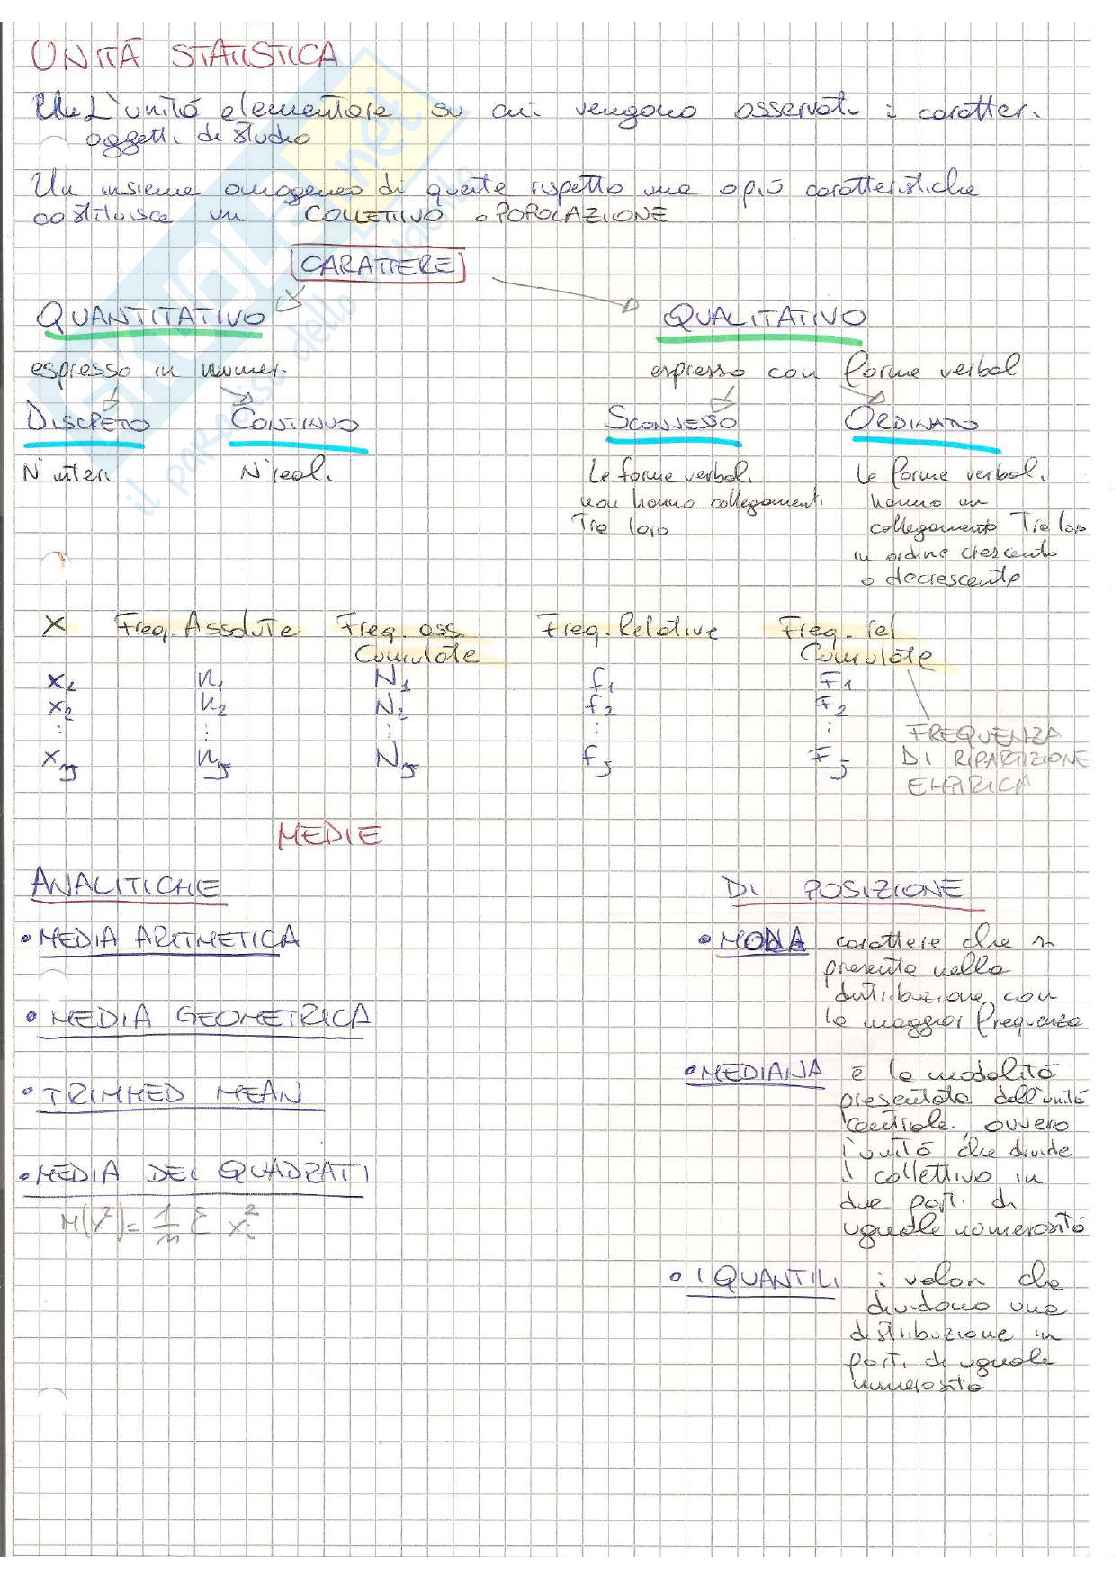 UNITÀ STATISTICA
L'unità elementare su cui vengono osservati i caratteri
oggetti di studio
Un insieme omogeneo di queste rispetto una o più caratteristiche
costituisce un COLLETTIVO o POPOLAZIONE
CARATTERE
QUANTITATIVO QUALITATIVO
espresso in numeri espresso con forme verbali
DISCRETO CONTINUO SCONNESSO ORDINATO
N° interi N° reali Le forme verbali Le forme verbali
non hanno collegamenti hanno un
Tra loro collegamento Tra loro
in ordine crescente
o decrescente
X Freq. Assolute Freq. ass. Freq. Relative Freq. rel
Cumulate Cumulate
x1 n1 N1 f1 F1
x2 n2 N2 f2 F2
⋮ ⋮ ⋮ ⋮ ⋮ FREQUENZA
xj nj Nj fj Fj DI RIPARTIZIONE
EMPIRICA
MEDIE
ANALITICHE DI POSIZIONE
• MEDIA ARITMETICA • MODA carattere che si
presenta nella
distribuzione con
• MEDIA GEOMETRICA la maggior frequenza
• TRIMMED MEAN • MEDIANA è la modalità
presentata dall'unità
centrale, ovvero
l'unità che divide
• MEDIA DEI QUADRATI il collettivo in
due parti di
M(x²) = 1/n Σ xi² uguale numerosità
• I QUANTILI i valori che
dividono una
distribuzione in
parti di uguale
numerosità
SKUOLA.net
il paradiso dello studente